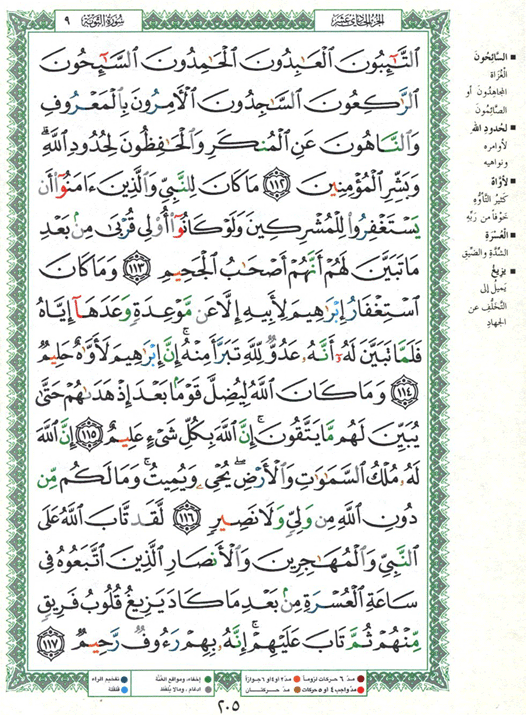 الجزء الحادي عشر
سورة التوبة
٩
التَّٰٓئِبُونَ الْعَٰبِدُونَ الْحَٰمِدُونَ السَّٰٓئِحُونَ
الرَّٰكِعُونَ السَّٰجِدُونَ الْءَامِرُونَ بِالْمَعْرُوفِ
وَالنَّاهُونَ عَنِ الْمُنكَرِ وَالْحَٰفِظُونَ لِحُدُودِ اللَّهِ ۗ
وَبَشِّرِ الْمُؤْمِنِينَ ١١٢ مَا كَانَ لِلنَّبِيِّ وَالَّذِينَ ءَامَنُوٓا أَن
يَسْتَغْفِرُوا لِلْمُشْرِكِينَ وَلَوْ كَانُوٓا أُولِي قُرْبَىٰ مِنۢ بَعْدِ
مَا تَبَيَّنَ لَهُمْ أَنَّهُمْ أَصْحَٰبُ الْجَحِيمِ ١١٣ وَمَا كَانَ
اسْتِغْفَارُ إِبْرَٰهِيمَ لِأَبِيهِ إِلَّا عَن مَّوْعِدَةٍ وَعَدَهَآ إِيَّاهُ
فَلَمَّا تَبَيَّنَ لَهُۥٓ أَنَّهُۥ عَدُوٌّ لِّلَّهِ تَبَرَّأَ مِنْهُ ۚ إِنَّ إِبْرَٰهِيمَ لَأَوَّٰهٌ حَلِيمٌ
١١٤ وَمَا كَانَ اللَّهُ لِيُضِلَّ قَوْمًۢا بَعْدَ إِذْ هَدَىٰهُمْ حَتَّىٰ
يُبَيِّنَ لَهُم مَّا يَتَّقُونَ ۚ إِنَّ اللَّهَ بِكُلِّ شَيْءٍ عَلِيمٌ ١١٥ إِنَّ اللَّهَ
لَهُۥ مُلْكُ السَّمَٰوَٰتِ وَالْأَرْضِ ۖ يُحْيِۦ وَيُمِيتُ ۚ وَمَا لَكُم مِّن
دُونِ اللَّهِ مِن وَلِيٍّ وَلَا نَصِيرٍ ١١٦ لَّقَد تَّابَ اللَّهُ عَلَى
النَّبِيِّ وَالْمُهَٰجِرِينَ وَالْأَنصَارِ الَّذِينَ اتَّبَعُوهُ فِي
سَاعَةِ الْعُسْرَةِ مِنۢ بَعْدِ مَا كَادَ يَزِيغُ قُلُوبُ فَرِيقٍ
مِّنْهُمْ ثُمَّ تَابَ عَلَيْهِمْ ۚ إِنَّهُۥ بِهِمْ رَءُوفٌ رَّحِيمٌ ١١٧
■ السَّائِحُونَ
الْغُزَاة
المجاهِدُونَ أو
الصَّائِمُونَ
■ لِحُدودِ الله
لأوامره
ونواهيه
■ لأوَّاهٌ
كثيرُ التَّأَوُّهِ
خوفاً من رَبِّه
■ العُسْرَةِ
الشِّدَّةِ والضِّيقِ
■ يَزِيغُ
يَميلُ إلى
التَّخَلُّفِ عن
الجهاد
مدّ ٦ حركات لزوماً
مدّ ٢ أو ٤ أو ٦ جوازاً
إخفاء، ومواقع الغُنَّة
تفخيم الراء
مدّ واجب ٤ أو ٥ حركات
مدّ حركتان
ادغام، وما لا يُلفَظ
قلقلة
٢٠٥